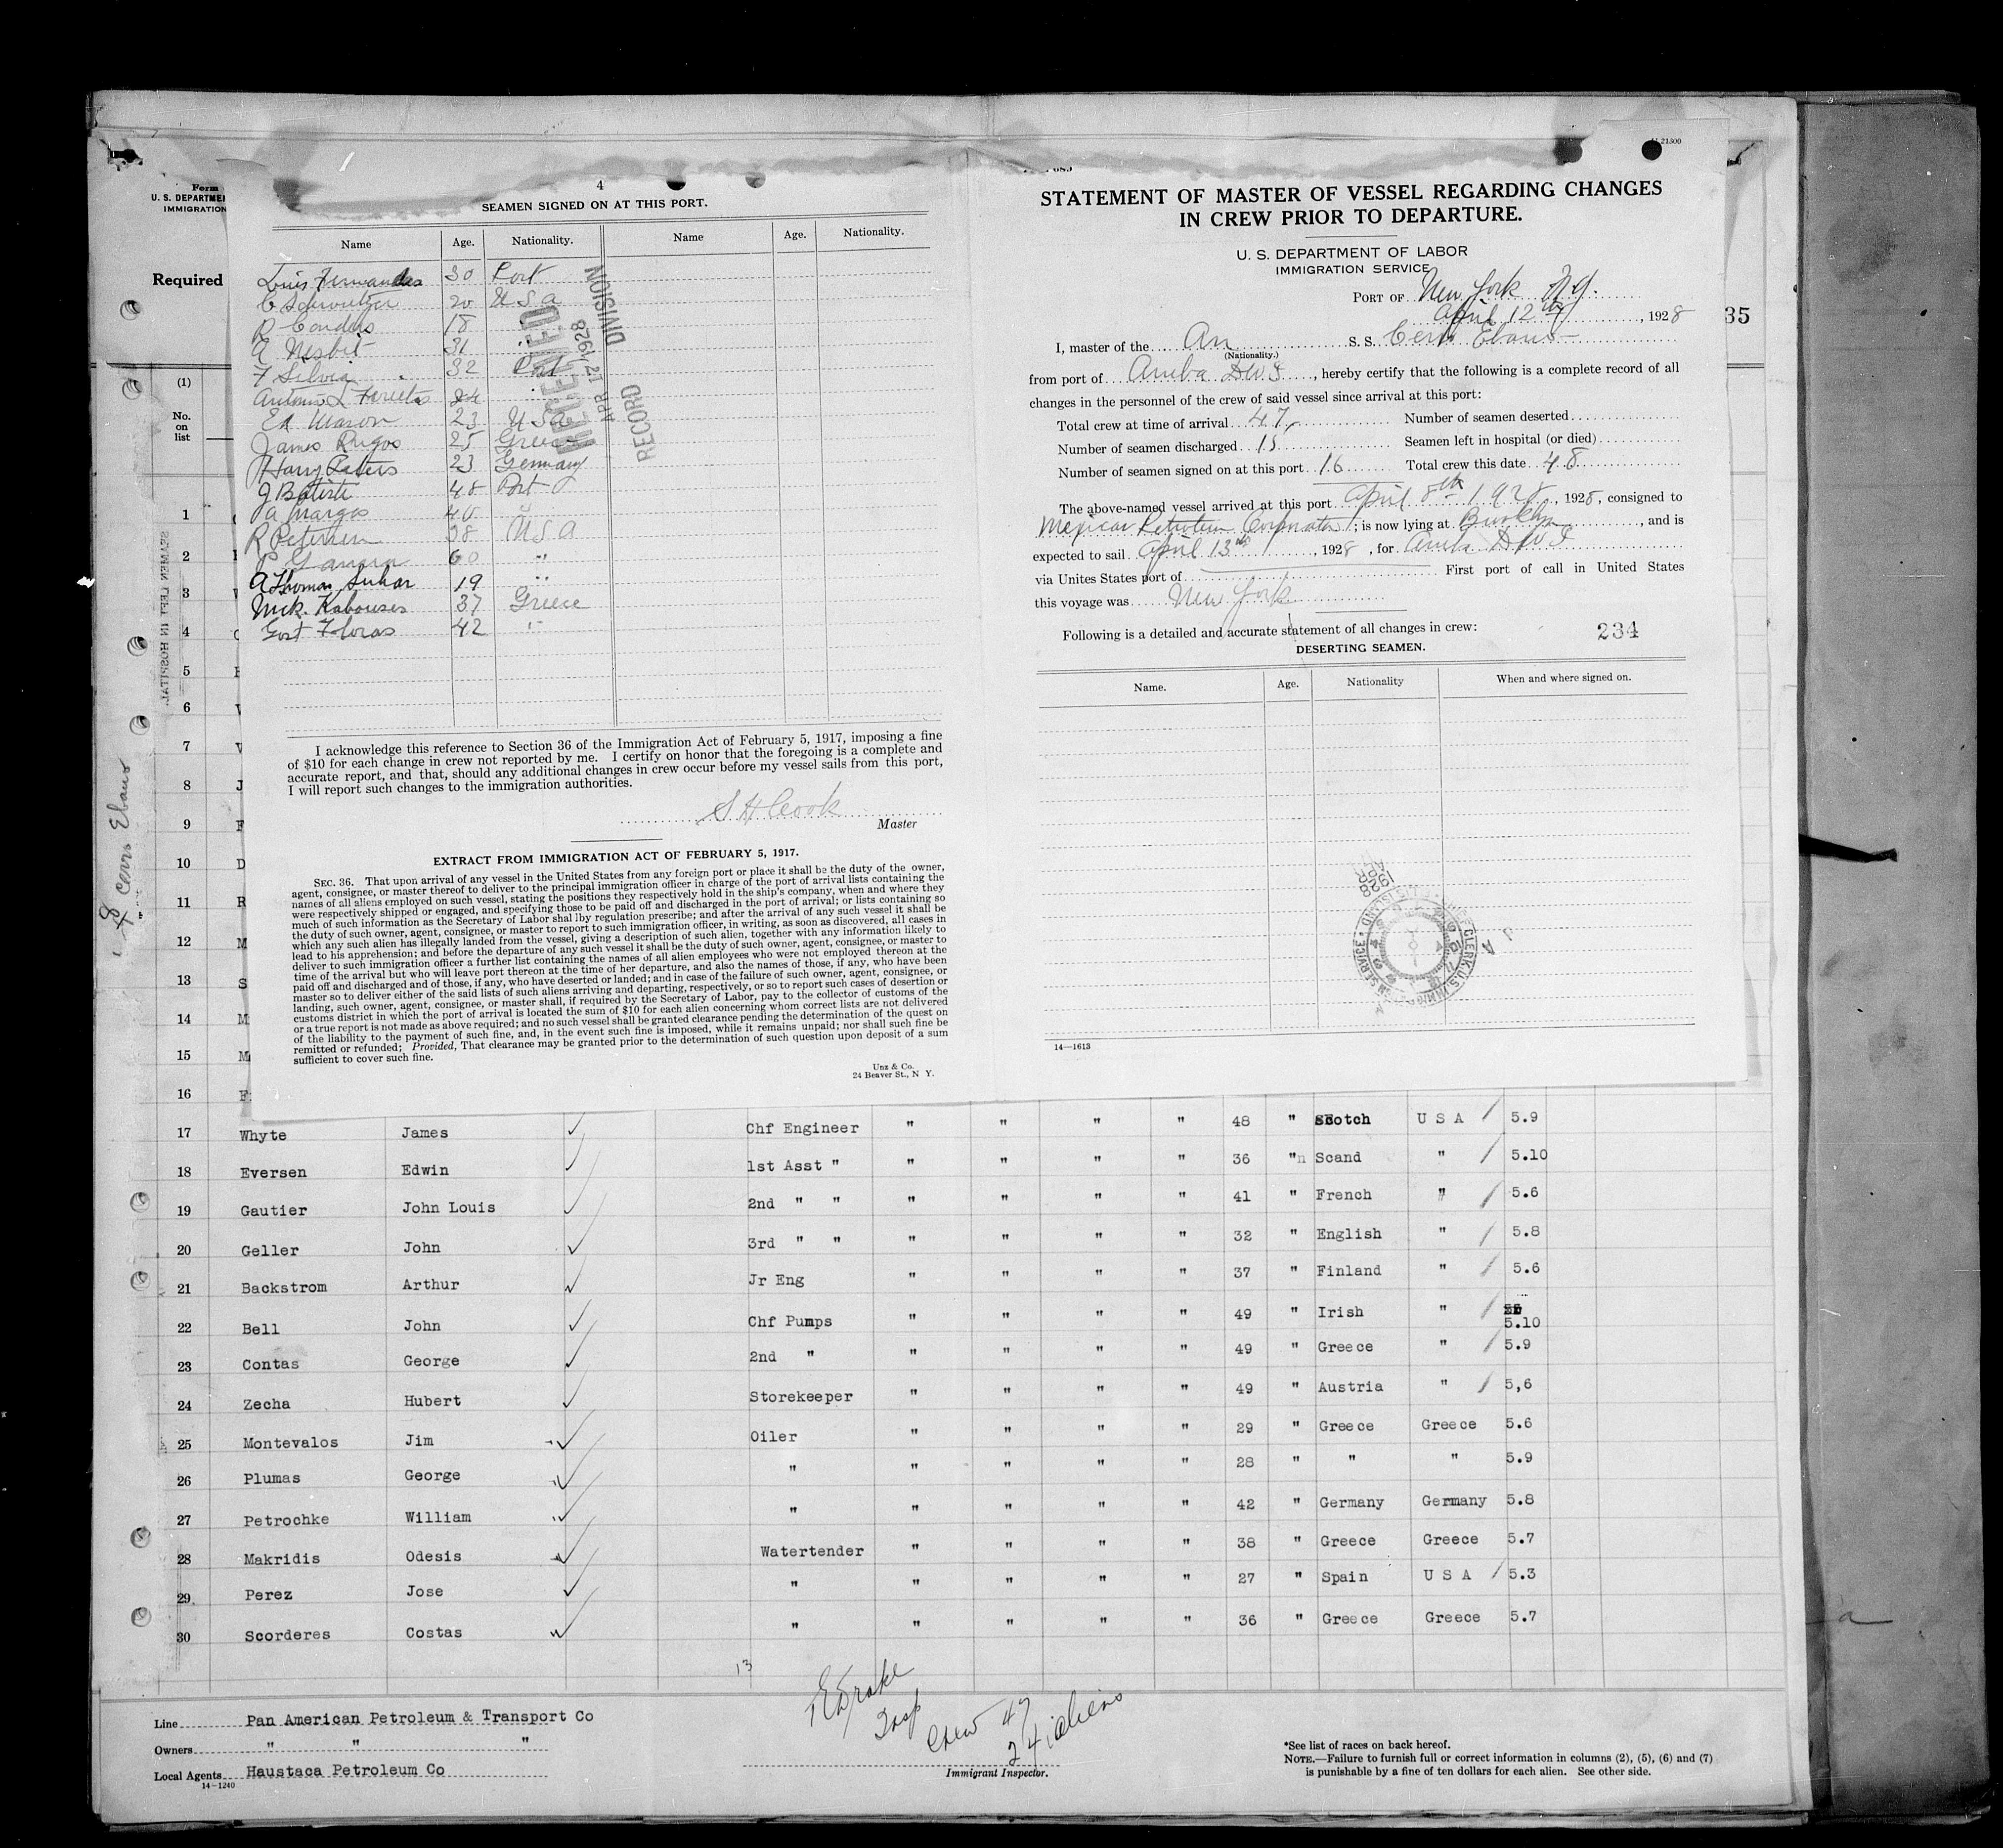 Form
U. S. DEPARTME
IMMIGRATION
Required
(1)
No.
on
list
4
SEAMEN SIGNED ON AT THIS PORT.
Name Age. Nationality. Name Age. Nationality.
Luis Fernandes 30 Port
C Schweitzer 20 U S A
18 "
A Nesbit 31 "
F Silvia 32 Port
24 "
Ed Mason 23 U S A
James Rugos 25 Greece
Harry Peters 23 Germany
J Batiste 48 Port
Margos 40 "
R Petersen 38 U S A
P 60 "
A Thomas Suhar 19 "
Nick Kabouses 37 Greece
Gost Floras 42 "
RECEIVED
APR 12 1928
RECORD DIVISION
I acknowledge this reference to Section 36 of the Immigration Act of February 5, 1917, imposing a fine
of $10 for each change in crew not reported by me. I certify on honor that the foregoing is a complete and
accurate report, and that, should any additional changes in crew occur before my vessel sails from this port,
I will report such changes to the immigration authorities.
S H Cook
Master
EXTRACT FROM IMMIGRATION ACT OF FEBRUARY 5, 1917.
SEC. 36. That upon arrival of any vessel in the United States from any foreign port or place it shall be the duty of the owner,
agent, consignee, or master thereof to deliver to the principal immigration officer in charge of the port of arrival lists containing the
names of all aliens employed on such vessel, stating the positions they respectively hold in the ship's company, when and where they
were respectively shipped or engaged, and specifying those to be paid off and discharged in the port of arrival; or lists containing so
much of such information as the Secretary of Labor shal lby regulation prescribe; and after the arrival of any such vessel it shall be
the duty of such owner, agent, consignee, or master to report to such immigration officer, in writing, as soon as discovered, all cases in
which any such alien has illegally landed from the vessel, giving a description of such alien, together with any information likely to
lead to his apprehension; and before the departure of any such vessel it shall be the duty of such owner, agent, consignee, or master to
deliver to such immigration officer a further list containing the names of all alien employees who were not employed thereon at the
time of the arrival but who will leave port thereon at the time of her departure, and also the names of those, if any, who have been
paid off and discharged and of those, if any, who have deserted or landed; and in case of the failure of such owner, agent, consignee, or
master so to deliver either of the said lists of such aliens arriving and departing, respectively, or so to report such cases of desertion or
landing, such owner, agent, consignee, or master shall, if required by the Secretary of Labor, pay to the collector of customs of the
customs district in which the port of arrival is located the sum of $10 for each alien concerning whom correct lists are not delivered
or a true report is not made as above required; and no such vessel shall be granted clearance pending the determination of the quest on
of the liability to the payment of such fine, and, in the event such fine is imposed, while it remains unpaid; nor shall such fine be
remitted or refunded; Provided, That clearance may be granted prior to the determination of such question upon deposit of a sum
sufficient to cover such fine.
Unz & Co.
24 Beaver St., N Y.
21300
STATEMENT OF MASTER OF VESSEL REGARDING CHANGES
IN CREW PRIOR TO DEPARTURE.
U. S. DEPARTMENT OF LABOR
IMMIGRATION SERVICE
PORT OF New York N.Y.
April 12th, 1928
35
I, master of the Am S. S. Cerro Ebano
(Nationality.)
from port of Aruba DWI, hereby certify that the following is a complete record of all
changes in the personnel of the crew of said vessel since arrival at this port:
Total crew at time of arrival 47 Number of seamen deserted
Number of seamen discharged 15 Seamen left in hospital (or died)
Number of seamen signed on at this port 16 Total crew this date 48
The above-named vessel arrived at this port April 8th 1928, 1928, consigned to
Mexican Petroleum Corporation; is now lying at Brooklyn, and is
expected to sail April 13th, 1928, for Aruba DWI
via Unites States port of First port of call in United States
this voyage was New York
Following is a detailed and accurate statement of all changes in crew:
234
DESERTING SEAMEN.
Name. Age. Nationality When and where signed on.
14—1613
SEAMEN LEFT IN HOSPITAL
Cerro Ebano
1
2
3
4
5
6
7 V
8 J
9 F
10 D
11 R
12 M
13 S
14 M
15 M
16 F
17 Whyte James Chf Engineer " " " " 48 " Scotch U S A / 5.9
18 Eversen Edwin 1st Asst " " " " " 36 "n Scand " / 5.10
19 Gautier John Louis 2nd " " " " " " 41 " French " / 5.6
20 Geller John 3rd " " " " " " 32 " English " / 5.8
21 Backstrom Arthur Jr Eng " " " " 37 " Finland " / 5.6
22 Bell John Chf Pumps " " " " 49 " Irish " / 5.10
23 Contas George 2nd " " " " " 49 " Greece " / 5.9
24 Zecha Hubert Storekeeper " " " " 49 " Austria " / 5,6
25 Montevalos Jim Oiler " " " " 29 " Greece Greece 5.6
26 Plumas George " " " " " 28 " " " 5.9
27 Petrochke William " " " " " 42 " Germany Germany 5.8
28 Makridis Odesis Watertender " " " " 38 " Greece Greece 5.7
29 Perez Jose " " " " " 27 " Spain U S A / 5.3
30 Scorderes Costas " " " " " 36 " Greece Greece 5.7
13
Drake
Insp
Crew 47
24 aliens
Line Pan American Petroleum & Transport Co
Owners " " "
Local Agents Haustaca Petroleum Co
14-1240
Immigrant Inspector.
*See list of races on back hereof.
NOTE.—Failure to furnish full or correct information in columns (2), (5), (6) and (7)
is punishable by a fine of ten dollars for each alien. See other side.